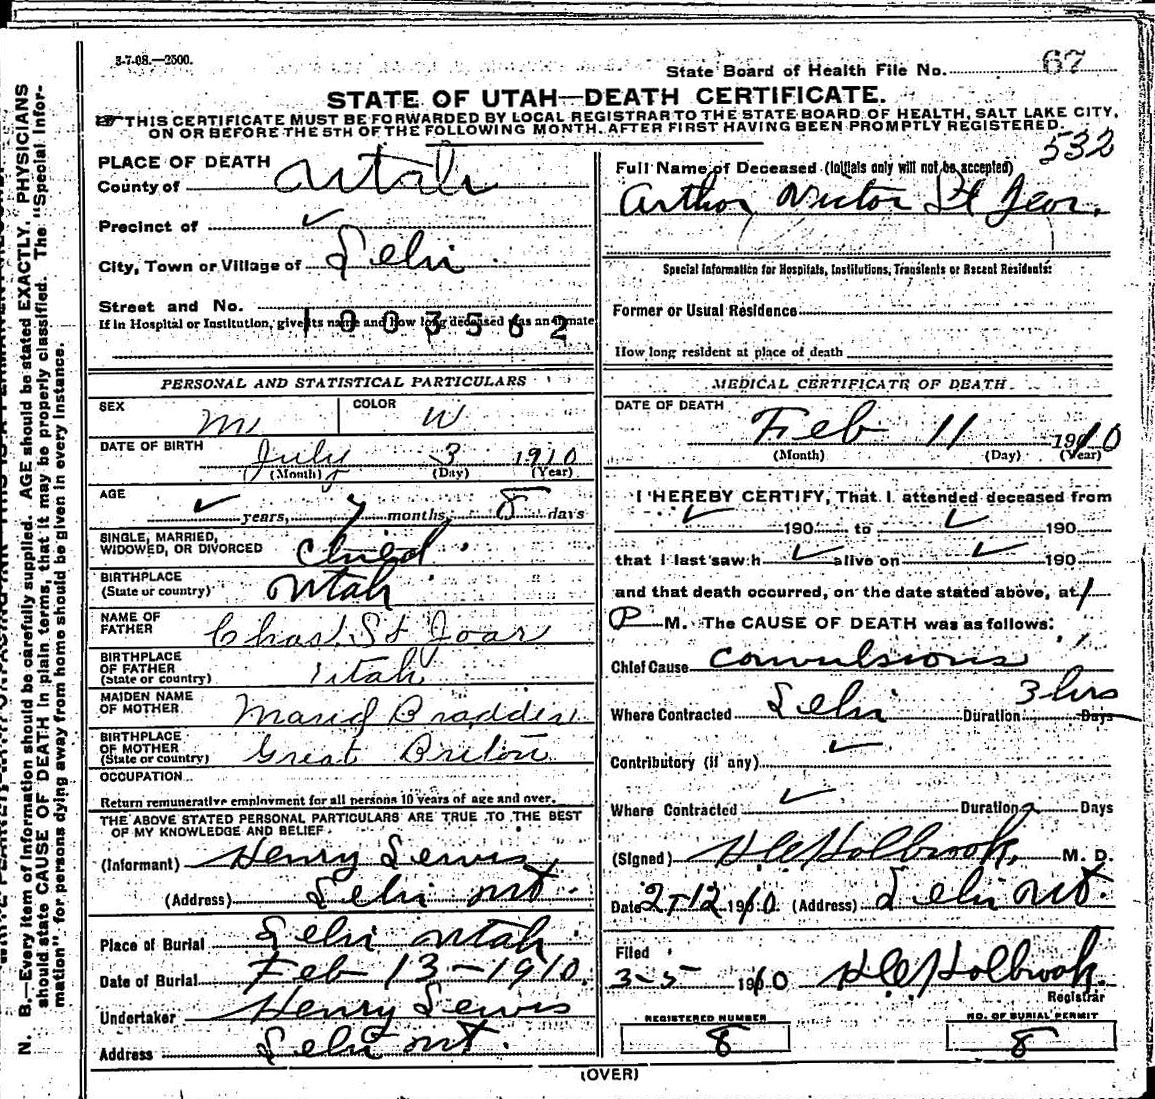 3-7-08.—2500.
State Board of Health File No. 67
STATE OF UTAH—DEATH CERTIFICATE.
THIS CERTIFICATE MUST BE FORWARDED BY LOCAL REGISTRAR TO THE STATE BOARD OF HEALTH, SALT LAKE CITY,
ON OR BEFORE THE 5TH OF THE FOLLOWING MONTH. AFTER FIRST HAVING BEEN PROMPTLY REGISTERED.
532
PLACE OF DEATH
County of Utah
Precinct of ✓
City, Town or Village of Lehi
Street and No.
If in Hospital or Institution, give its name and how long deceased was an inmate
1003562
PERSONAL AND STATISTICAL PARTICULARS
SEX M COLOR W
DATE OF BIRTH July 3 1910
(Month) (Day) (Year)
AGE
✓ years, 7 months, 8 days
SINGLE, MARRIED,
WIDOWED, OR DIVORCED Child
BIRTHPLACE
(State or country) Utah
NAME OF
FATHER Chas. St Joar
BIRTHPLACE
OF FATHER
(State or country) Utah
MAIDEN NAME
OF MOTHER
BIRTHPLACE
OF MOTHER
(State or country) Great Briton
OCCUPATION
Return remunerative employment for all persons 10 years of age and over.
THE ABOVE STATED PERSONAL PARTICULARS ARE TRUE TO THE BEST
OF MY KNOWLEDGE AND BELIEF
(Informant) Henry Lewis
(Address) Lehi Ut.
Place of Burial Lehi Utah
Date of Burial Feb 13-1910
Undertaker Henry Lewis
Address Lehi Ut.
Full Name of Deceased (Initials only will not be accepted)
Arthor Victor St Jeor.
Special Information for Hospitals, Institutions, Transients or Recent Residents:
Former or Usual Residence
How long resident at place of death
MEDICAL CERTIFICATE OF DEATH
DATE OF DEATH
Feb 11 1910
(Month) (Day) (Year)
I HEREBY CERTIFY, That I attended deceased from
✓ 190 to ✓ 190
that I last saw h ✓ alive on ✓ 190
and that death occurred, on the date stated above, at 1
P M. The CAUSE OF DEATH was as follows:
Chief Cause Convulsions
Where Contracted Lehi Duration 3 hrs Days
Contributory (if any) ✓
Where Contracted ✓ Duration Days
(Signed) Holbrook, M. D.
Date 2-12 1910. (Address) Lehi Ut.
Filed
3-5 1910 Holbrook.
Registrar
REGISTERED NUMBER
8
NO. OF BURIAL PERMIT
8
(OVER)
N. B.—Every item of information should be carefully supplied. AGE should be stated EXACTLY. PHYSICIANS
should state CAUSE OF DEATH in plain terms, that it may be properly classified. The "Special Infor-
mation" for persons dying away from home should be given in every instance.